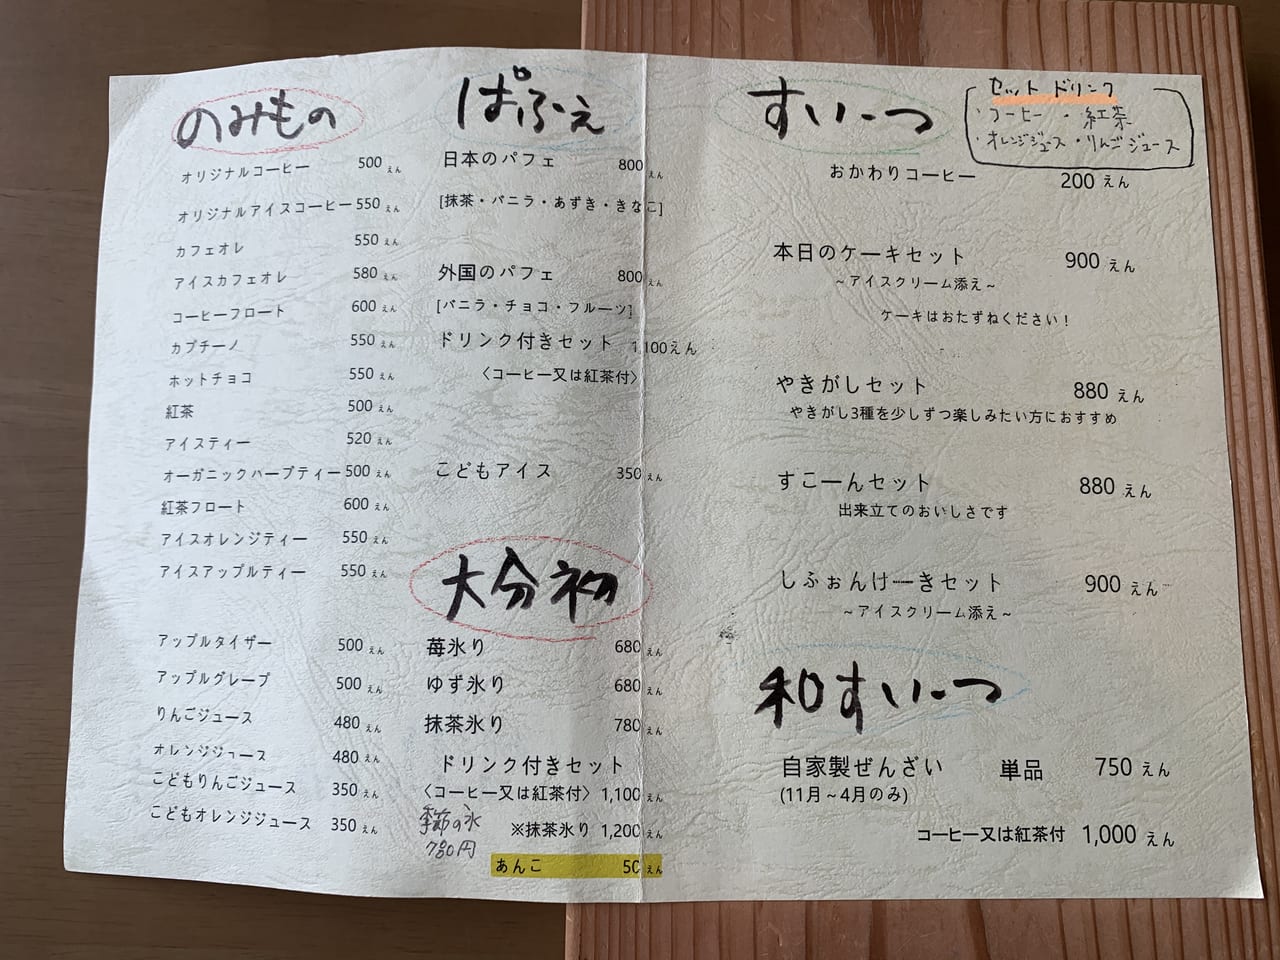 のみもの
オリジナルコーヒー 500えん
オリジナルアイスコーヒー 550えん
カフェオレ 550えん
アイスカフェオレ 580えん
コーヒーフロート 600えん
カプチーノ 550えん
ホットチョコ 550えん
紅茶 500えん
アイスティー 520えん
オーガニックハーブティー 500えん
紅茶フロート 600えん
アイスオレンジティー 550えん
アイスアップルティー 550えん
アップルタイザー 500えん
アップルグレープ 500えん
りんごジュース 480えん
オレンジジュース 480えん
こどもりんごジュース 350えん
こどもオレンジジュース 350えん
ぱふぇ
日本のパフェ 800えん
[抹茶・バニラ・あずき・きなこ]
外国のパフェ 800えん
[バニラ・チョコ・フルーツ]
ドリンク付きセット 1,100えん
〈コーヒー又は紅茶付〉
こどもアイス 350えん
大分初
苺氷り 680えん
ゆず氷り 680えん
抹茶氷り 780えん
ドリンク付きセット
〈コーヒー又は紅茶付〉 1,100えん
※抹茶氷り 1,200えん
季節の氷
780円
あんこ 50えん
すいーつ
セットドリンク
・コーヒー ・紅茶
・オレンジジュース ・りんごジュース
おかわりコーヒー 200えん
本日のケーキセット 900えん
～アイスクリーム添え～
ケーキはおたずねください！
やきがしセット 880えん
やきがし3種を少しずつ楽しみたい方におすすめ
すこーんセット 880えん
出来立てのおいしさです
しふぉんけーきセット 900えん
～アイスクリーム添え～
和すいーつ
自家製ぜんざい 単品 750えん
(11月～4月のみ)
コーヒー又は紅茶付 1,000えん